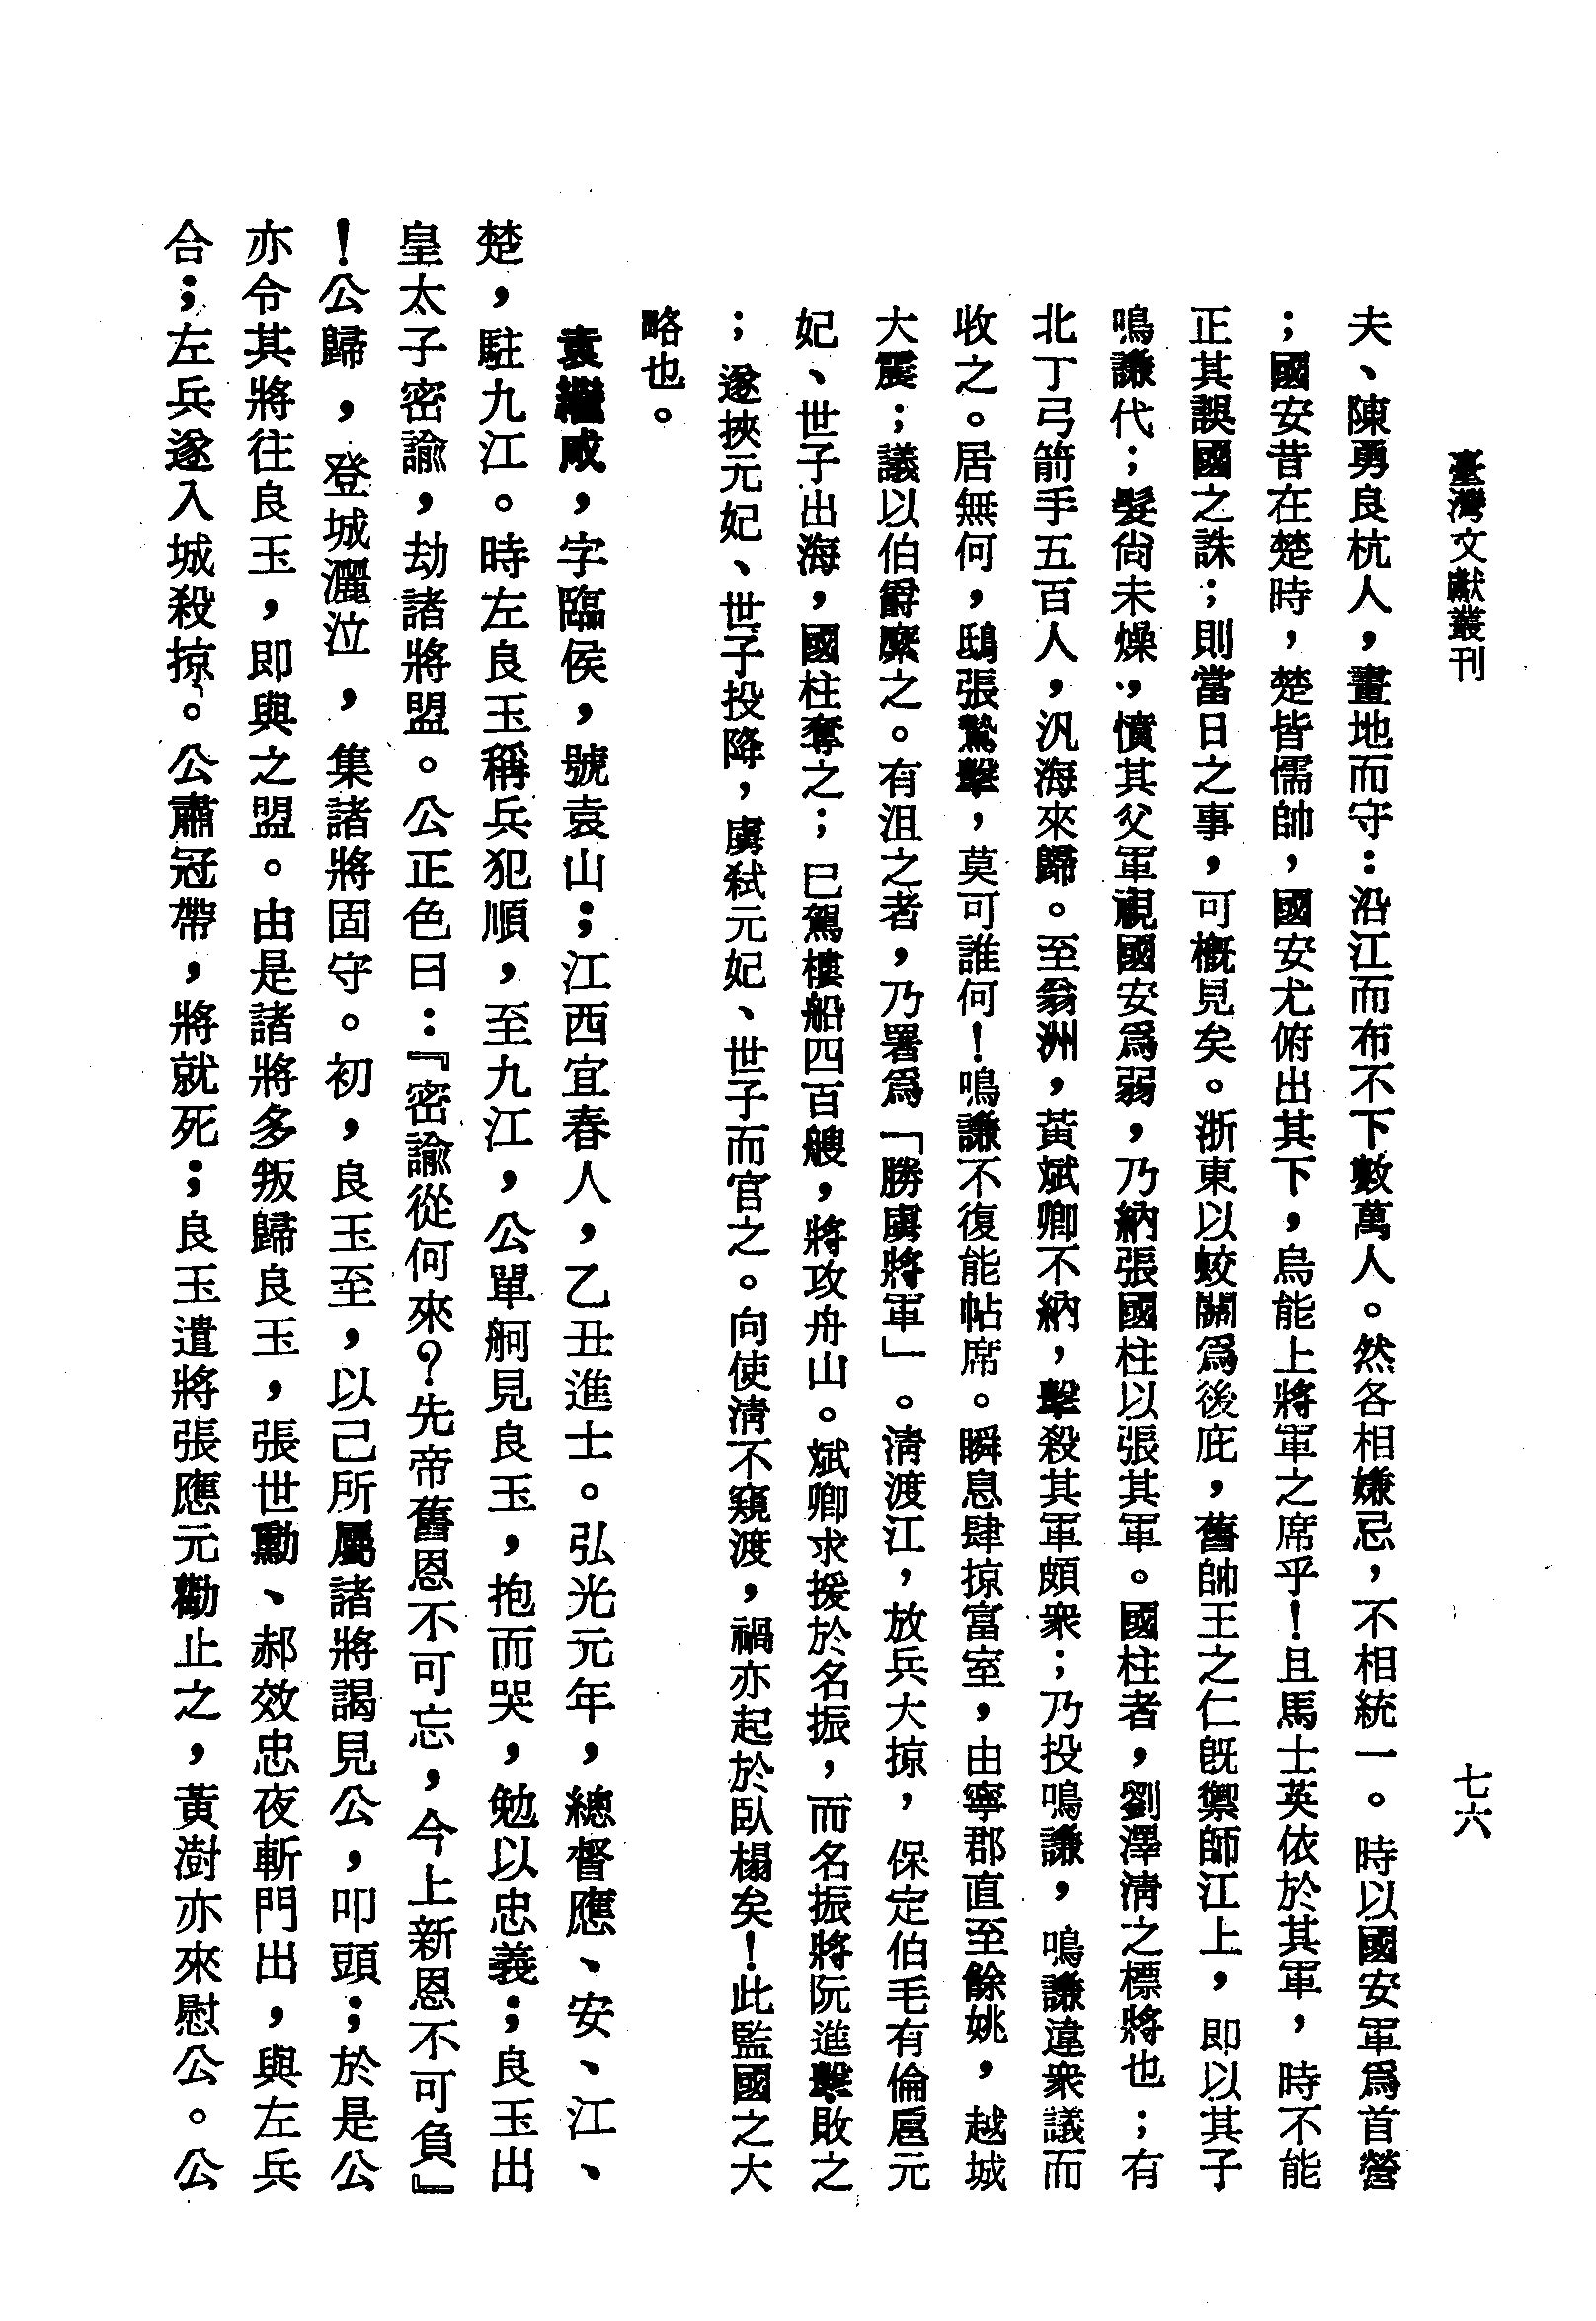 臺灣文獻叢刊
七六
夫、陳勇良杭人，畫地而守：沿江而布不下數萬人。然各相嫌忌，不相統一。時以國安軍爲首營
；國安昔在楚時，楚皆儒帥，國安尤俯出其下，烏能上將軍之席乎！且馬士英依於其軍，時不能
正其誤國之誅；則當日之事，可概見矣。浙東以蛟關爲後庇，舊帥王之仁旣禦師江上，即以其子
鳴謙代；髮尙未燥，憤其父軍視國安爲弱，乃納張國柱以張其軍。國柱者，劉澤清之標將也；有
北丁弓箭手五百人，汎海來歸。至翁洲，黃斌卿不納，擊殺其軍頗衆；乃投鳴謙，鳴謙違衆議而
收之。居無何，鴟張驚擊，莫可誰何！鳴謙不復能帖席。瞬息肆掠富室，由寧郡直至餘姚，越城
大震；議以伯爵縻之。有沮之者，乃署爲「勝虜將軍」。清渡江，放兵大掠，保定伯毛有倫扈元
妃、世子出海，國柱奪之；已駕樓船四百艘，將攻舟山。斌卿求援於名振，而名振將阮進擊敗之
；遂挾元妃、世子投降，虜弑元妃、世子而官之。向使清不窺渡，禍亦起於臥榻矣！此監國之大
略也。
袁繼咸，字臨侯，號袁山；江西宜春人，乙丑進士。弘光元年，總督應、安、江、
楚，駐九江。時左良玉稱兵犯順，至九江，公單舸見良玉，抱而哭，勉以忠義；良玉出
皇太子密諭，劫諸將盟。公正色曰：『密諭從何來？先帝舊恩不可忘，今上新恩不可負』
！公歸，登城灑泣，集諸將固守。初，良玉至，以己所屬諸將謁見公，叩頭；於是公
亦令其將往良玉，即與之盟。由是諸將多叛歸良玉，張世勳、郝效忠夜斬門出，與左兵
合；左兵遂入城殺掠。公肅冠帶，將就死；良玉遣將張應元勸止之，黃澍亦來慰公。公